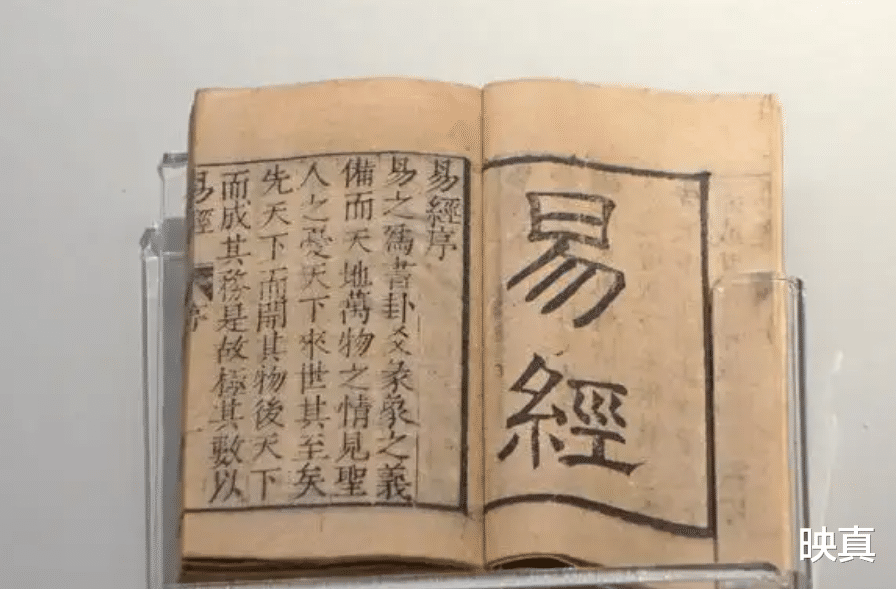 易經
易經序
易之爲書卦爻彖象之義
備而天地萬物之情見聖
人之憂天下來世其至矣
先天下而開其物後天下
而成其務是故極其數以
易經 序 一
映真